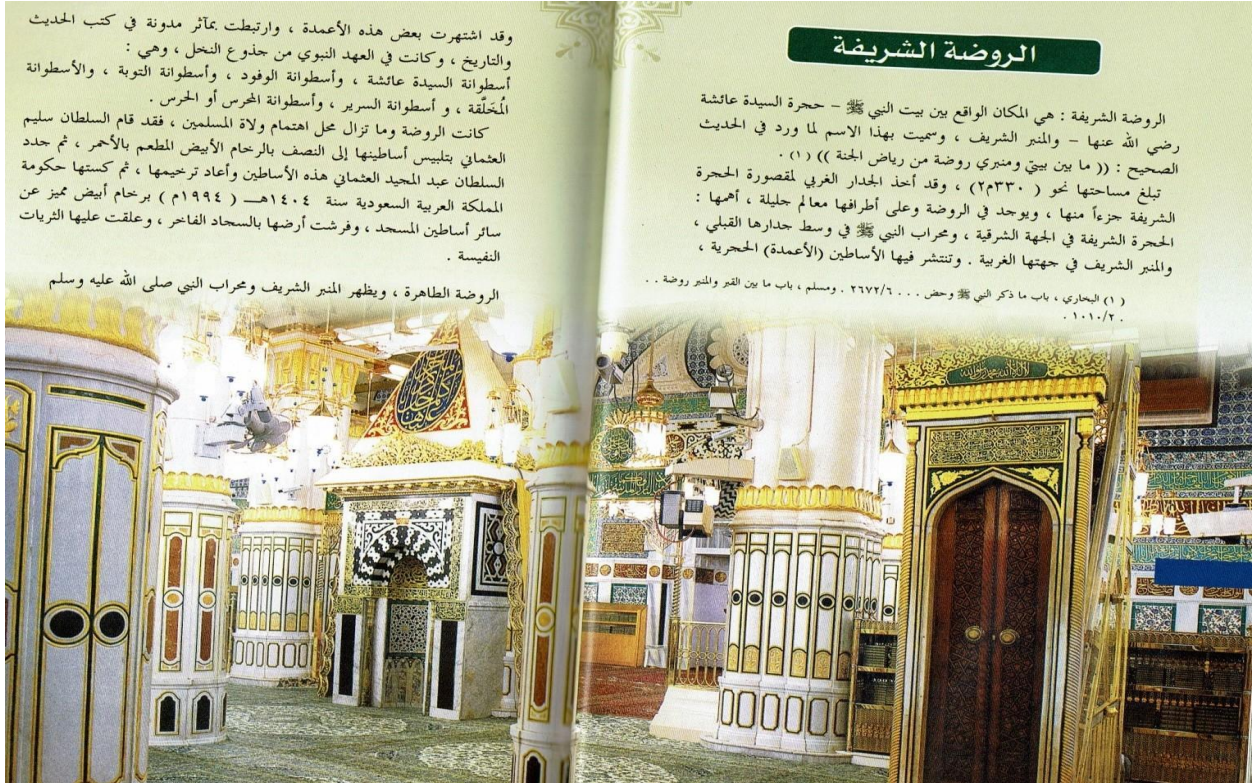 الروضة الشريفة
الروضة الشريفة : هي المكان الواقع بين بيت النبي ﷺ – حجرة السيدة عائشة
رضي الله عنها – والمنبر الشريف ، وسميت بهذا الاسم لما ورد في الحديث
الصحيح : (( ما بين بيتي ومنبري روضة من رياض الجنة )) (١) .
تبلغ مساحتها نحو ( ٣٣٠م٢) ، وقد أخذ الجدار الغربي لمقصورة الحجرة
الشريفة جزءاً منها ، ويوجد في الروضة وعلى أطرافها معالم جليلة ، أهمها :
الحجرة الشريفة في الجهة الشرقية ، ومحراب النبي ﷺ في وسط جدارها القبلي ،
والمنبر الشريف في جهتها الغربية . وتنتشر فيها الأساطين (الأعمدة) الحجرية ،
(١) البخاري ، باب ما ذكر النبي ﷺ وحض . . . ٢٦٧٢/٦ . ومسلم ، باب ما بين القبر والمنبر روضة . .
. ١٠١٠/٢ .
وقد اشتهرت بعض هذه الأعمدة ، وارتبطت بمآثر مدونة في كتب الحديث
والتاريخ ، وكانت في العهد النبوي من جذوع النخل ، وهي :
أسطوانة السيدة عائشة ، وأسطوانة الوفود ، وأسطوانة التوبة ، والأسطوانة
المُخَلَّقة ، و أسطوانة السرير ، وأسطوانة المحرس أو الحرس .
كانت الروضة وما تزال محل اهتمام ولاة المسلمين ، فقد قام السلطان سليم
العثماني بتلبيس أساطينها إلى النصف بالرخام الأبيض المطعم بالأحمر ، ثم جدد
السلطان عبد المجيد العثماني هذه الأساطين وأعاد ترخيمها ، ثم كستها حكومة
المملكة العربية السعودية سنة ١٤٠٤هـ ( ١٩٩٤م ) برخام أبيض مميز عن
سائر أساطين المسجد ، وفرشت أرضها بالسجاد الفاخر ، وعلقت عليها الثريات
النفيسة .
الروضة الطاهرة ، ويظهر المنبر الشريف ومحراب النبي صلى الله عليه وسلم
لا إله إلا الله محمد رسول الله